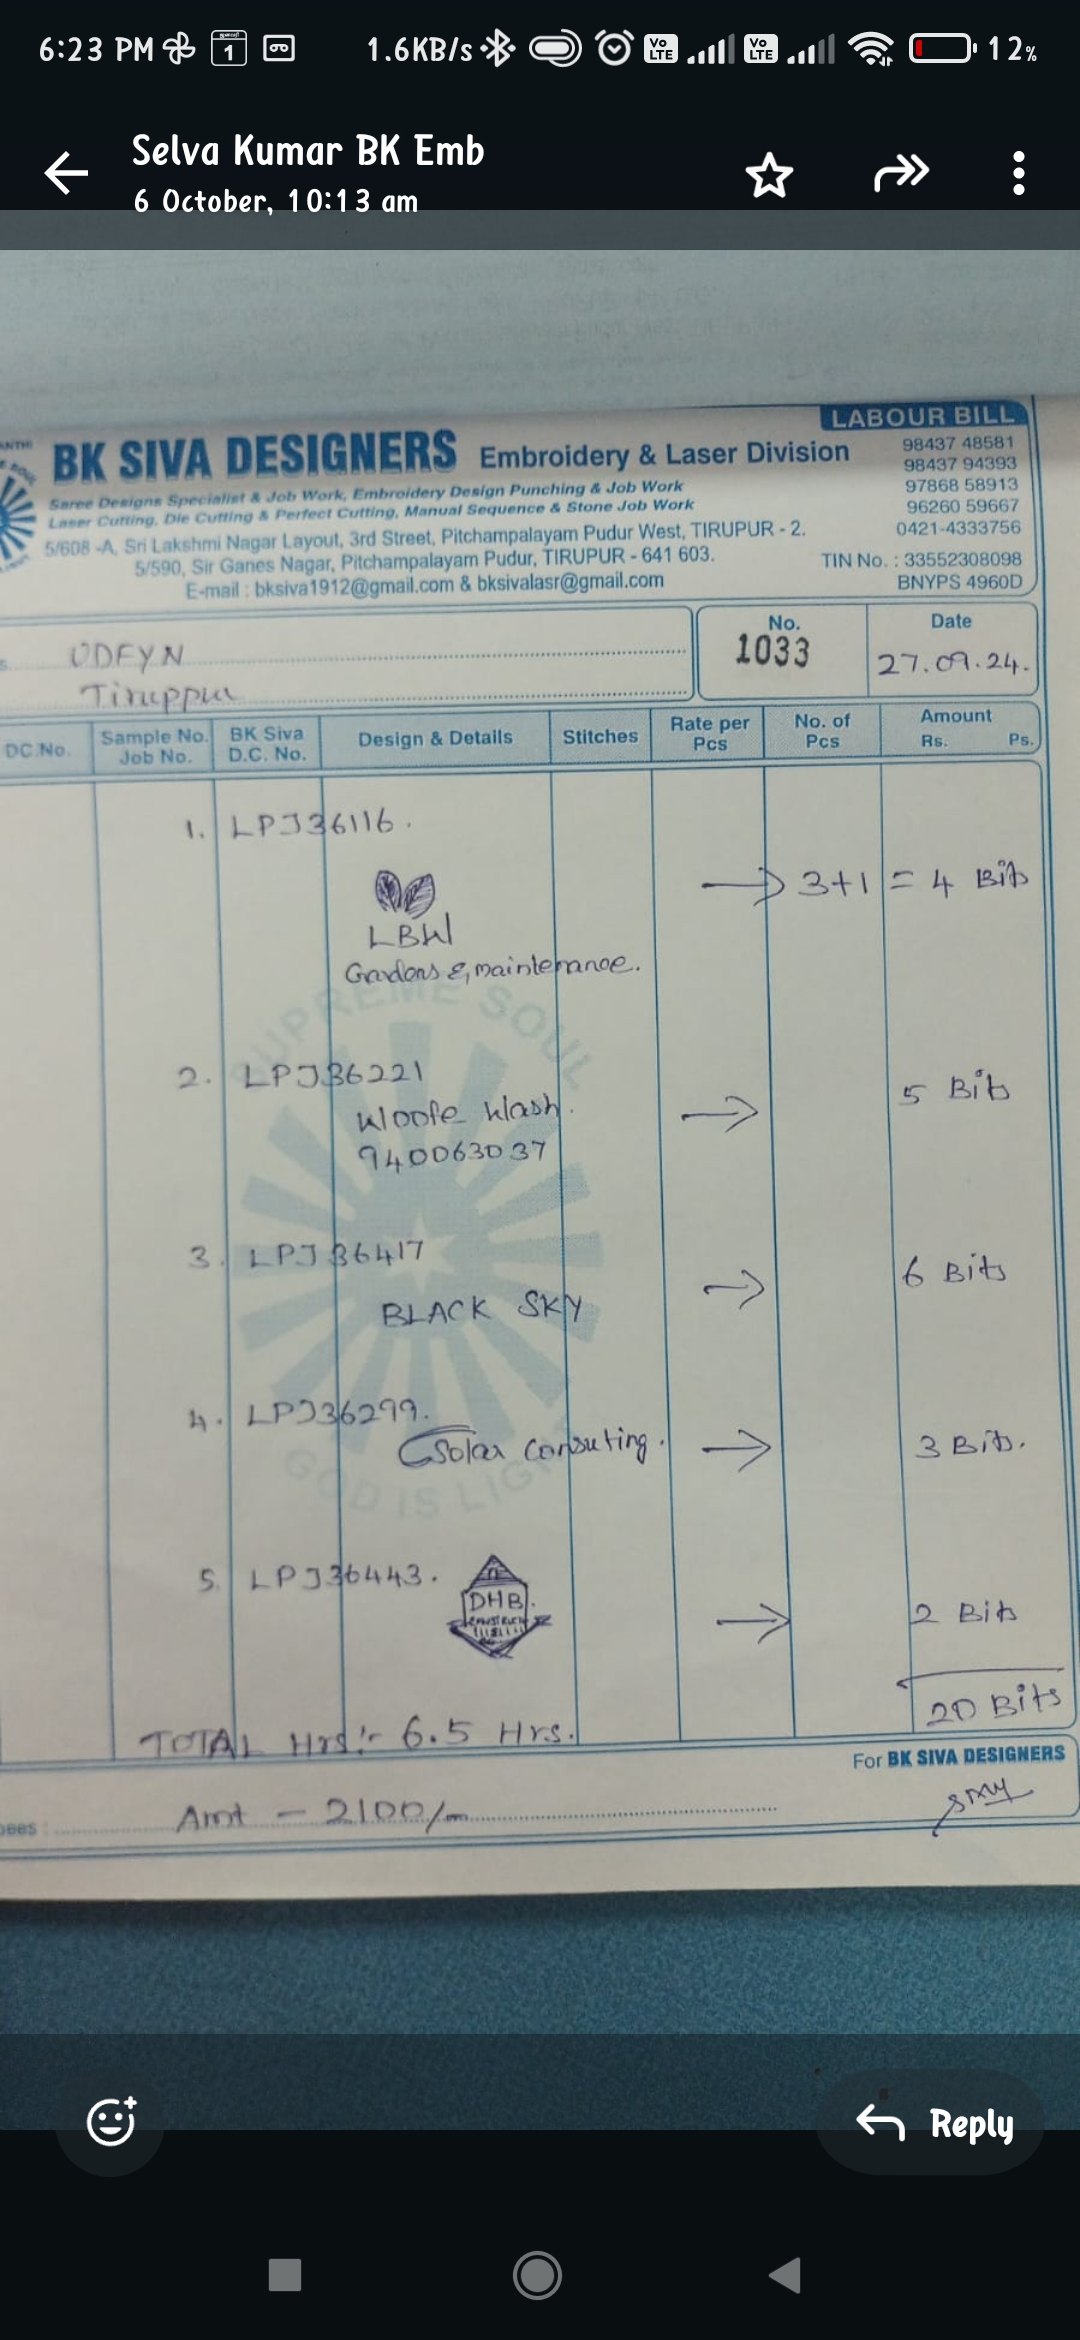 6:23 PM 1 1.6KB/s Vo LTE Vo LTE 12%
Selva Kumar BK Emb
6 October, 10:13 am
LABOUR BILL
BK SIVA DESIGNERS Embroidery & Laser Division
Saree Designs Specialist & Job Work, Embroidery Design Punching & Job Work
Laser Cutting, Die Cutting & Perfect Cutting, Manual Sequence & Stone Job Work
5/608 -A, Sri Lakshmi Nagar Layout, 3rd Street, Pitchampalayam Pudur West, TIRUPUR - 2.
5/590, Sir Ganes Nagar, Pitchampalayam Pudur, TIRUPUR - 641 603.
E-mail : bksiva1912@gmail.com & bksivalasr@gmail.com
98437 48581
98437 94393
97868 58913
96260 59667
0421-4333756
TIN No. : 33552308098
BNYPS 4960D
UDFYN
Tiruppur
No.
1033
Date
27.09.24.
DC.No.
Sample No.
Job No.
BK Siva
D.C. No.
Design & Details
Stitches
Rate per
Pcs
No. of
Pcs
Amount
Rs. Ps.
1. LPJ36116.
LBW
Gardens & maintenance.
→ 3+1 = 4 Bits
2. LPJ36221
Woofe Wash.
940063037
→ 5 Bits
3. LPJ36417
BLACK SKY
→ 6 Bits
4. LPJ36299.
Solar Consuting.
→ 3 Bits.
5. LPJ36443.
DHB
→ 2 Bits
20 Bits
TOTAL Hrs:- 6.5 Hrs.
For BK SIVA DESIGNERS
Amt - 2100/-
SUPREME SOUL
GOD IS LIGHT
Reply